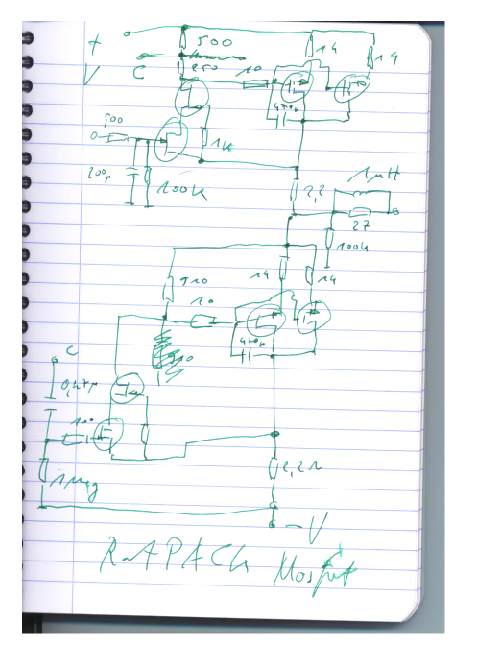 500
+
14
14
V
C
250
10
470p
500
1K
200p
100K
2,2
1µH
27
100k
14
14
910
10
470p
10
C
0,47µ
100
1Meg
2,2Ω
-V
R-APACH Mosfet